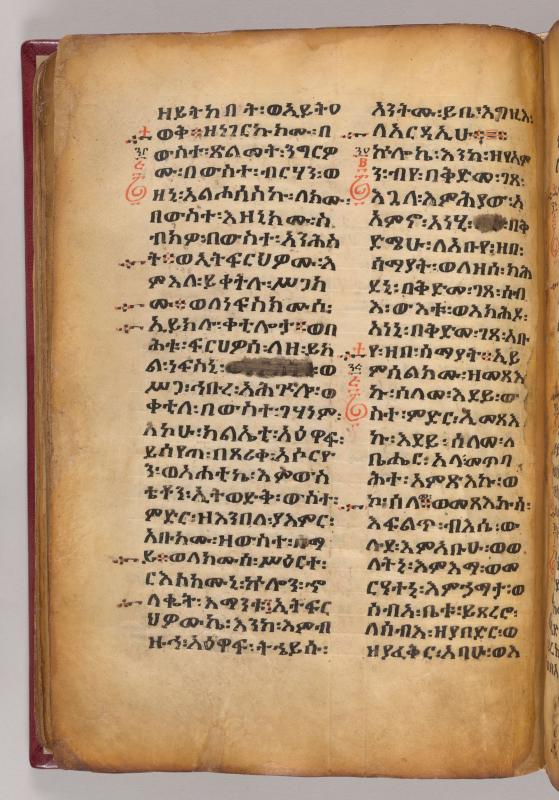 ዘይትከበት፡ወኢይትዐ
ወቅ፡፡ዘነገርኩክሙ፡በ
ውስተ፡ጽልመት፡ንግርዎ
ሙ፡በውስተ፡ብርሃን፡ወ
ዘኒ፡አልሖሰስኩ፡ለክሙ፡
በውስተ፡እዝኒክሙ፡ስ
ብክዎ፡በውስተ፡አንሕስ
ት፡፡ወኢትፍርህዎሙ፡እ
ምእለ፡ይቀትሉ፡ሥጋክ
ሙ፡፡ወለነፍስክሙሰ፡
ኢይክሉ፡ቀቲሎታ፡፡ወበ
ሕቱ፡ፍርህዎሰ፡ለዘ፡ይክ
ል፡ነፍሰኒ፡ወ
ሥጋ፡ኅቡረ፡አሕጕሎ፡ወ
ቀቲለ፡በውስተ፡ገሃነም፡
አኮሁ፡ክልኤቲ፡አዕዋፍ፡
ይሰየጣ፡በጸሪቀ፡አሶርዮ
ን፡ወአሐቲኬ፡እምውስ
ቴቶን፡ኢትወድቅ፡ውስተ፡
ምድር፡ዘእንበለ፡ያእምር፡
አቡክሙ፡ዘውስተ፡ሰማ
ይ፡፡ወለክሙሰ፡ሥዕርተ፡
ርእስክሙኒ፡ኵሎን፡ኍ
ለቊት፡እማንቱ፡ኢትፍር
ህዎሙኬ፡እንከ፡እምብ
ዙኅ፡አዕዋፍ፡ትኄይሱ፡
አንትሙ፡ይቤ፡እግዚእ፡
ለአርዳኢሁ፡፡
ኵሎኬ፡እንከ፡ዘየአም
ን፡ብየ፡በቅድመ፡ገጸ፡
እጓለ፡እምሕያው፡አ
አምኖ፡አነሂ፡በቅ
ድሜሁ፡ለአቡየ፡ዘበ፡
ሰማያት፡ወለዘሰ፡ክሕ
ደኒ፡በቅድመ፡ገጸ፡ሰብ
እ፡ውእቱ፡ወእክሕደ፡
አነኒ፡በቅድመ፡ገጸ፡አቡ
የ፡ዘበ፡ሰማያት፡፡ኢይ
ምሰልክሙ፡ዘመጻእ
ኩ፡ሰላመ፡እደይ፡ው
ስተ፡ምድር፡ኢመጻእ
ኩ፡እደይ፡ሰላመ፡ለ
ቤሔር፡አላ፡መጥባ
ሕተ፡አምጻእኩ፡ወ
ኮ፡ሰላመ፡፡ወመጻእኩሰ፡
እፍልጥ፡ብእሴ፡ው
ሉደ፡እምአቡሁ፡ወወ
ለትኒ፡እምእማ፡ወመ
ርዓተኒ፡እምኃማታ፡ወ
ሰብአ፡ቤቱ፡ይጸረሮ፡
ለሰብእ፡ዘያበድር፡ወ
ዘያፈቅር፡አባሁ፡ወእ